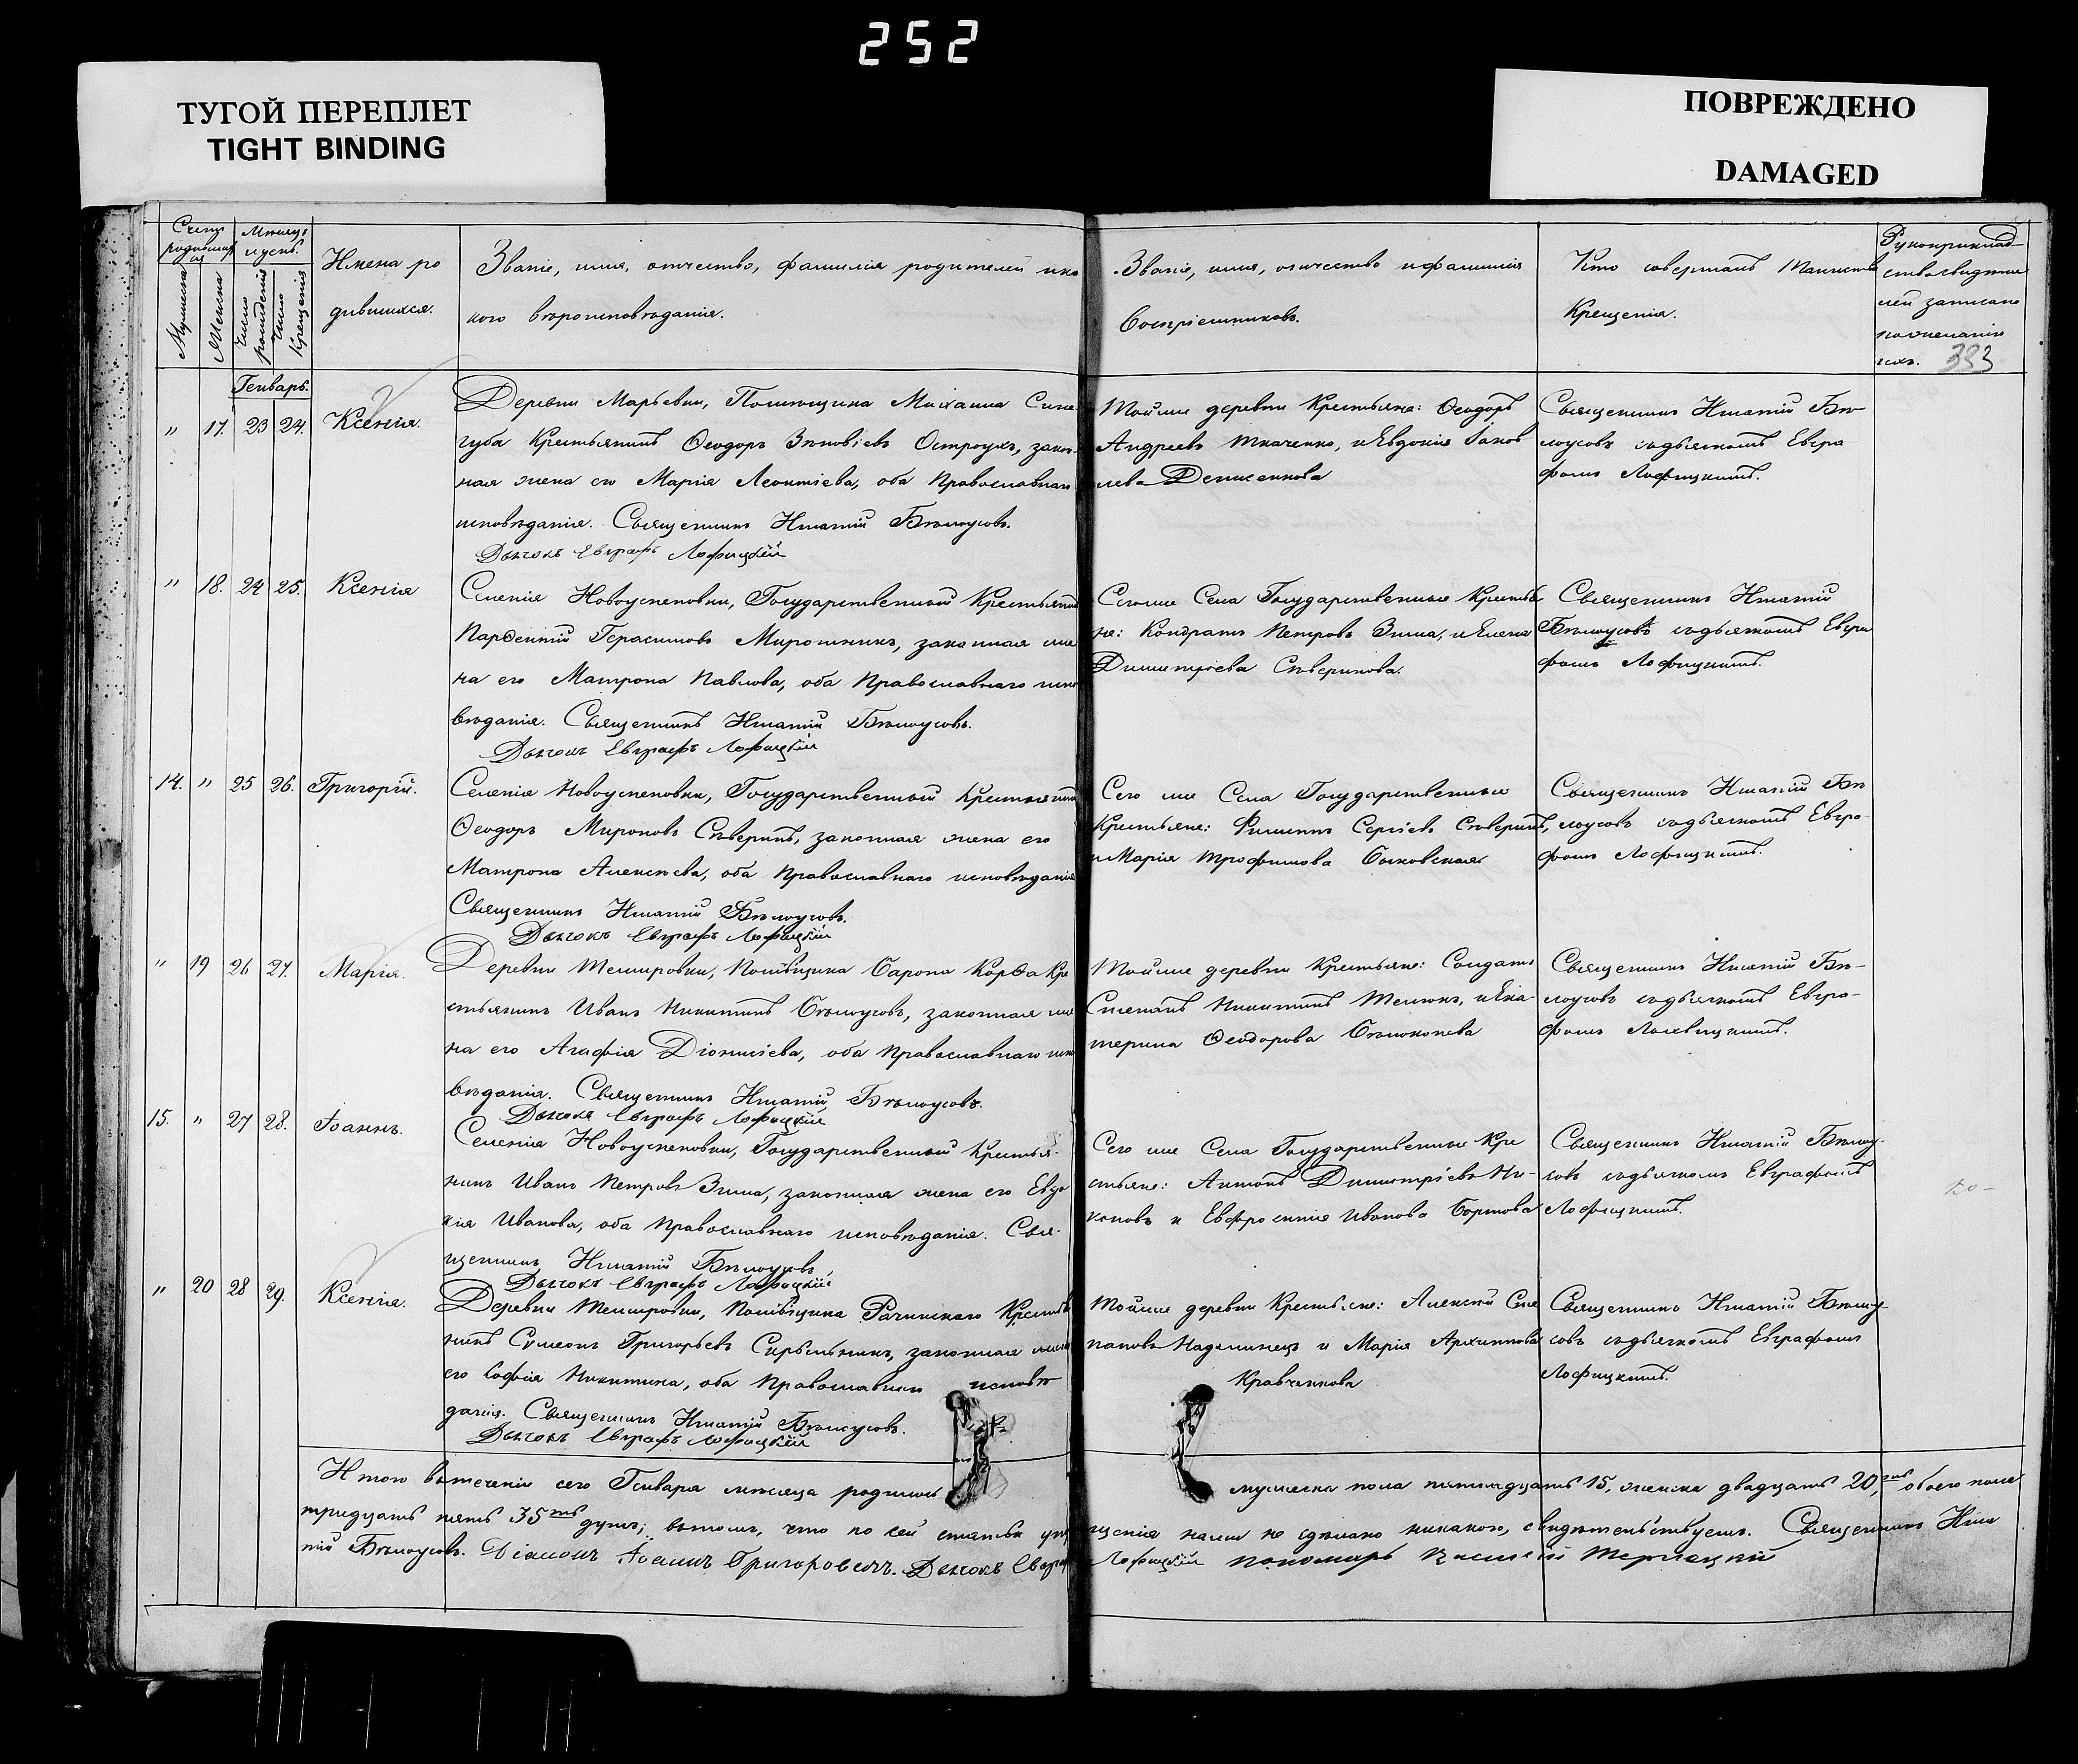 252
ТУГОЙ ПЕРЕПЛЕТ
TIGHT BINDING
ПОВРЕЖДЕНО
DAMAGED
Счетъ
родивших
ся
Мѣсяцъ
Мужеска
Женска
Число
рожденія
Число
Крещенія
Имена ро
дившихся.
Званіе, имя, отчество, фамилія родителей и ка
кого вѣроисповѣданія.
Званіе, имя, отчество и фамилія
Воспріемниковъ.
Кто совершалъ Таинство
Крещенія.
Рукоприклад
ство свидѣте
лей записано
по желанію
ихъ. 393
Генварь.
" 17. 23 24. Ксенія.
Деревни Марьевки, Помѣщика Михаила Сине
губа Крестьянинъ Ѳеодоръ Зѣновіевъ Остроухъ, закон-
ная жена его Марія Леонтіева, оба Православнаго
исповѣданія. Священникъ Игнатій Бѣлоусовъ.
Дьячокъ Евграфъ Лофицкій
Той же деревни Крестьяне: Ѳеодоръ
Андреевъ Ткаченко, и Евдокія Яков
лева Денисенкова
Священникъ Игнатій Бѣ
лоусовъ съ дьячкомъ Евгра
фомъ Лофицкимъ.
" 18. 24 25. Ксенія
Селенія Новоуспеновки, Государственный Крестьянинъ
Парѳентій Герасимовъ Мирошникъ, законная же
на его Матрона Павлова, оба Православнаго испо
вѣданія. Священникъ Игнатій Бѣлоусовъ.
Дьячокъ Евграфъ Лофицкій
Сего же Села Государственные Крестья
не: Кондратъ Петровъ Зима, и Елена
Димитріева Сѣверинова.
Священникъ Игнатій
Бѣлоусовъ съ дьячкомъ Евгра
фомъ Лофицкимъ.
14. " 25 26. Григорій.
Селенія Новоуспеновки, Государственный Крестьянинъ
Ѳеодоръ Мироновъ Сѣверинъ, законная жена его
Матрона Алексѣева, оба Православнаго исповѣданія
Священникъ Игнатій Бѣлоусовъ.
Дьячокъ Евграфъ Лофицкій
Сего же Села Государственные
Крестьяне: Филиппъ Сергѣевъ Сѣверинъ,
и Марія Трофимова Быковская
Священникъ Игнатій Бѣ
лоусовъ съ дьячкомъ Евгра-
фомъ Лофицкимъ.
" 19 26 27. Марія.
Деревни Темировки, Помѣщика Барона Корфа Кре
стьянинъ Иванъ Никитинъ Бѣлоусовъ, законная же
на его Агафія Діонисіева, оба Православнаго испо
вѣданія. Священникъ Игнатій Бѣлоусовъ.
Дьячокъ Евграфъ Лофицкій
Той же деревни Крестьяне: Солдатъ
Степанъ Никитинъ и Ека-
терина Ѳеодорова Бѣлоконева
Священникъ Игнатій Бѣ-
лоусовъ съ дьячкомъ Евгра-
фомъ Лофицкимъ.
15. " 27 28. Іоаннъ.
Селенія Новоуспеновки, Государственный Крестья-
нинъ Иванъ Петровъ Зима, законная жена его Евдо
кія Иванова, оба Православнаго исповѣданія. Свя-
щенникъ Игнатій Бѣлоусовъ
Дьячокъ Евграфъ Лофицкій
Сего же Села Государственные Кре
стьяне: Антонъ Димитріевъ Ни-
коновъ и Евфросинія Иванова Бортова
Священникъ Игнатій Бѣлоу-
совъ съ дьячкомъ Евграфомъ
Лофицкимъ.
" 20 28 29. Ксенія.
Деревни Темировки, Помѣщика Рачинскаго Крестья
нинъ Сѵмеонъ Григорьевъ законная жена
его Софія Никитина, оба Православнаго исповѣ
данія. Священникъ Игнатій Бѣлоусовъ.
Дьячокъ Евграфъ Лофицкій
Той же деревни Крестьяне: Алексѣй Сте
пановъ и Марія Архиппова
Кравченкова
Священникъ Игнатій Бѣлоу-
совъ съ дьячкомъ Евграфомъ
Лофицкимъ.
Итого въ теченіи сего Генваря мѣсяца родилось мужеска пола пятнадцать 15, женска двадцать 20, обоего пола
тридцать пять 35 душъ; въ томъ, что по сей статьѣ упу щенія нами не сдѣлано никакого, свидѣтельствуемъ. Священникъ Игна
тій Бѣлоусовъ. Діаконъ Іоаннъ Григоровичъ. Дьячокъ Евграфъ Лофицкій Пономарь Василій Терлецкій